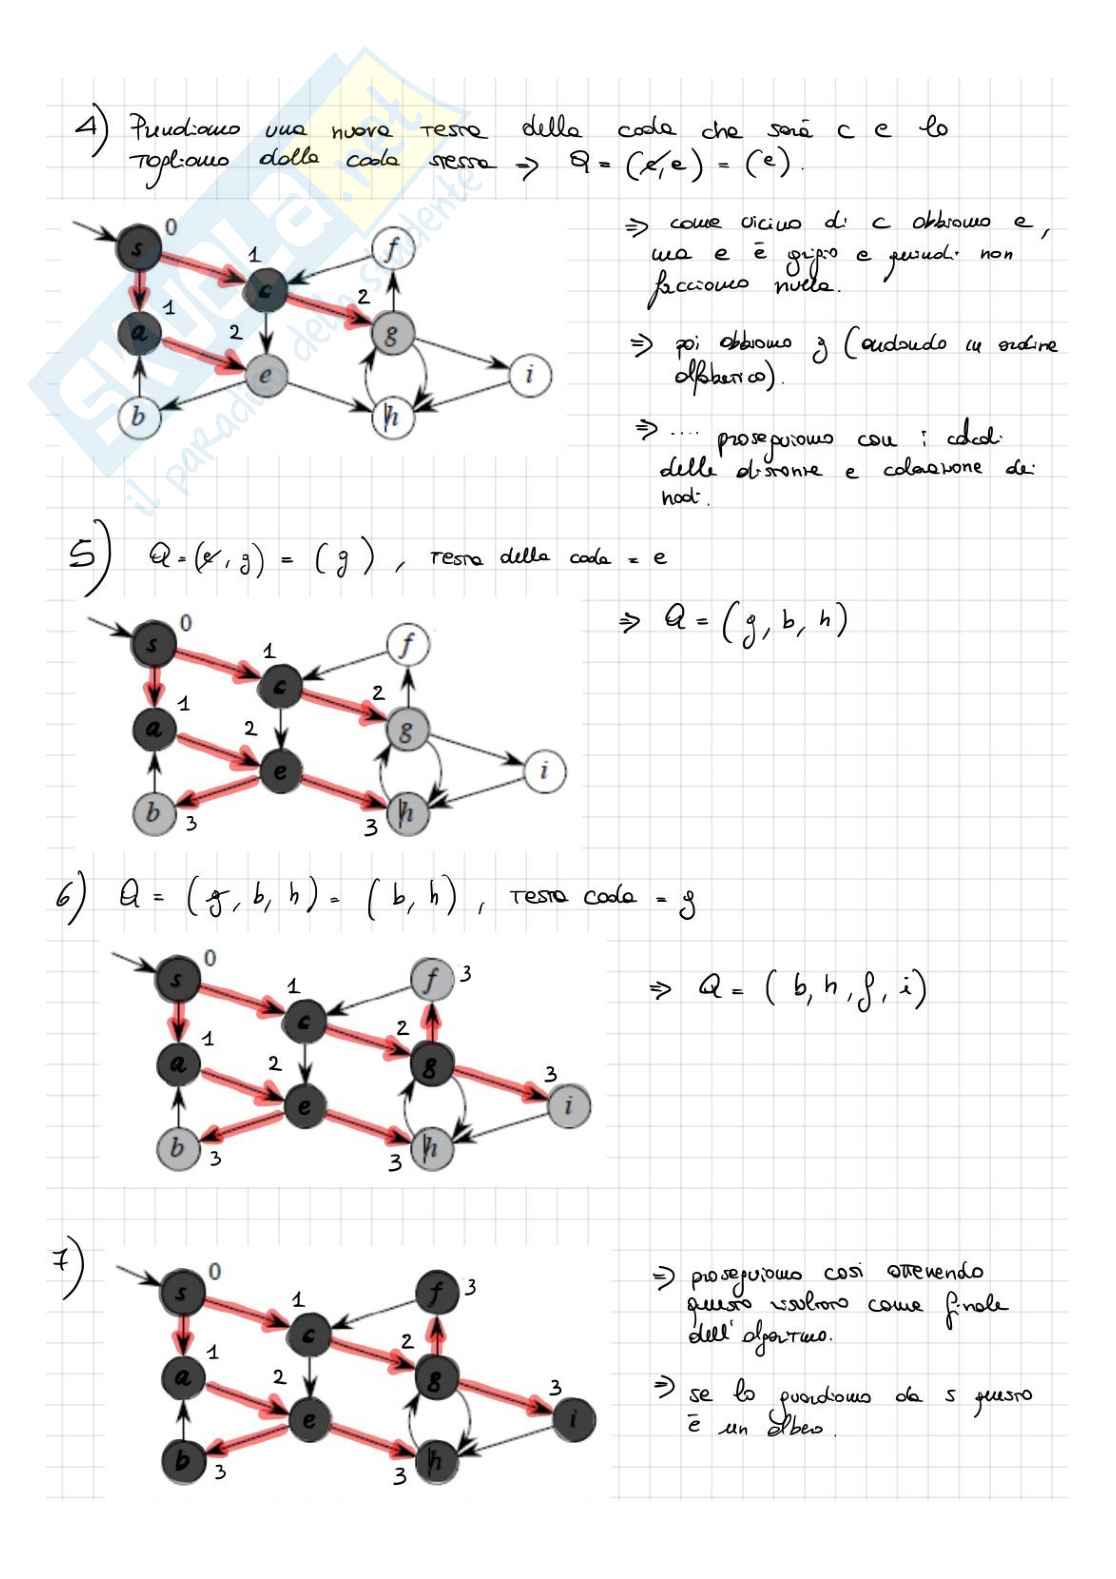 4) Prendiamo una nuova testa della coda che sarà c e lo
togliamo dalla coda stessa ⇒ Q = (c, e) = (e).
⇒ come vicino di c abbiamo e,
ma e è grigio e quindi non
facciamo nulla.
⇒ poi abbiamo g (andando in ordine
alfabetico).
⇒ .... proseguiamo con i calcoli
delle distanze e colorazione dei
nodi.
s 0 c 1 f a 1 e 2 g 2 i b h
5) Q = (e, g) = (g), testa della coda = e
⇒ Q = (g, b, h)
s 0 c 1 f a 1 e 2 g 2 i b 3 h 3
6) Q = (g, b, h) = (b, h), testa coda = g
⇒ Q = (b, h, f, i)
s 0 c 1 f 3 a 1 e 2 g 2 i 3 b 3 h 3
7)
⇒ proseguiamo così ottenendo
questo risultato come finale
dell'algoritmo.
⇒ se lo guardiamo da s questo
è un albero.
s 0 c 1 f 3 a 1 e 2 g 2 i 3 b 3 h 3
SKUOLA.net
il paradiso dello studente